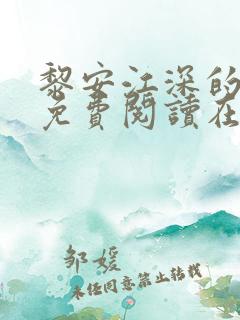 黎安江深的
免費閱讀在
邹媛
未经同意禁止转载